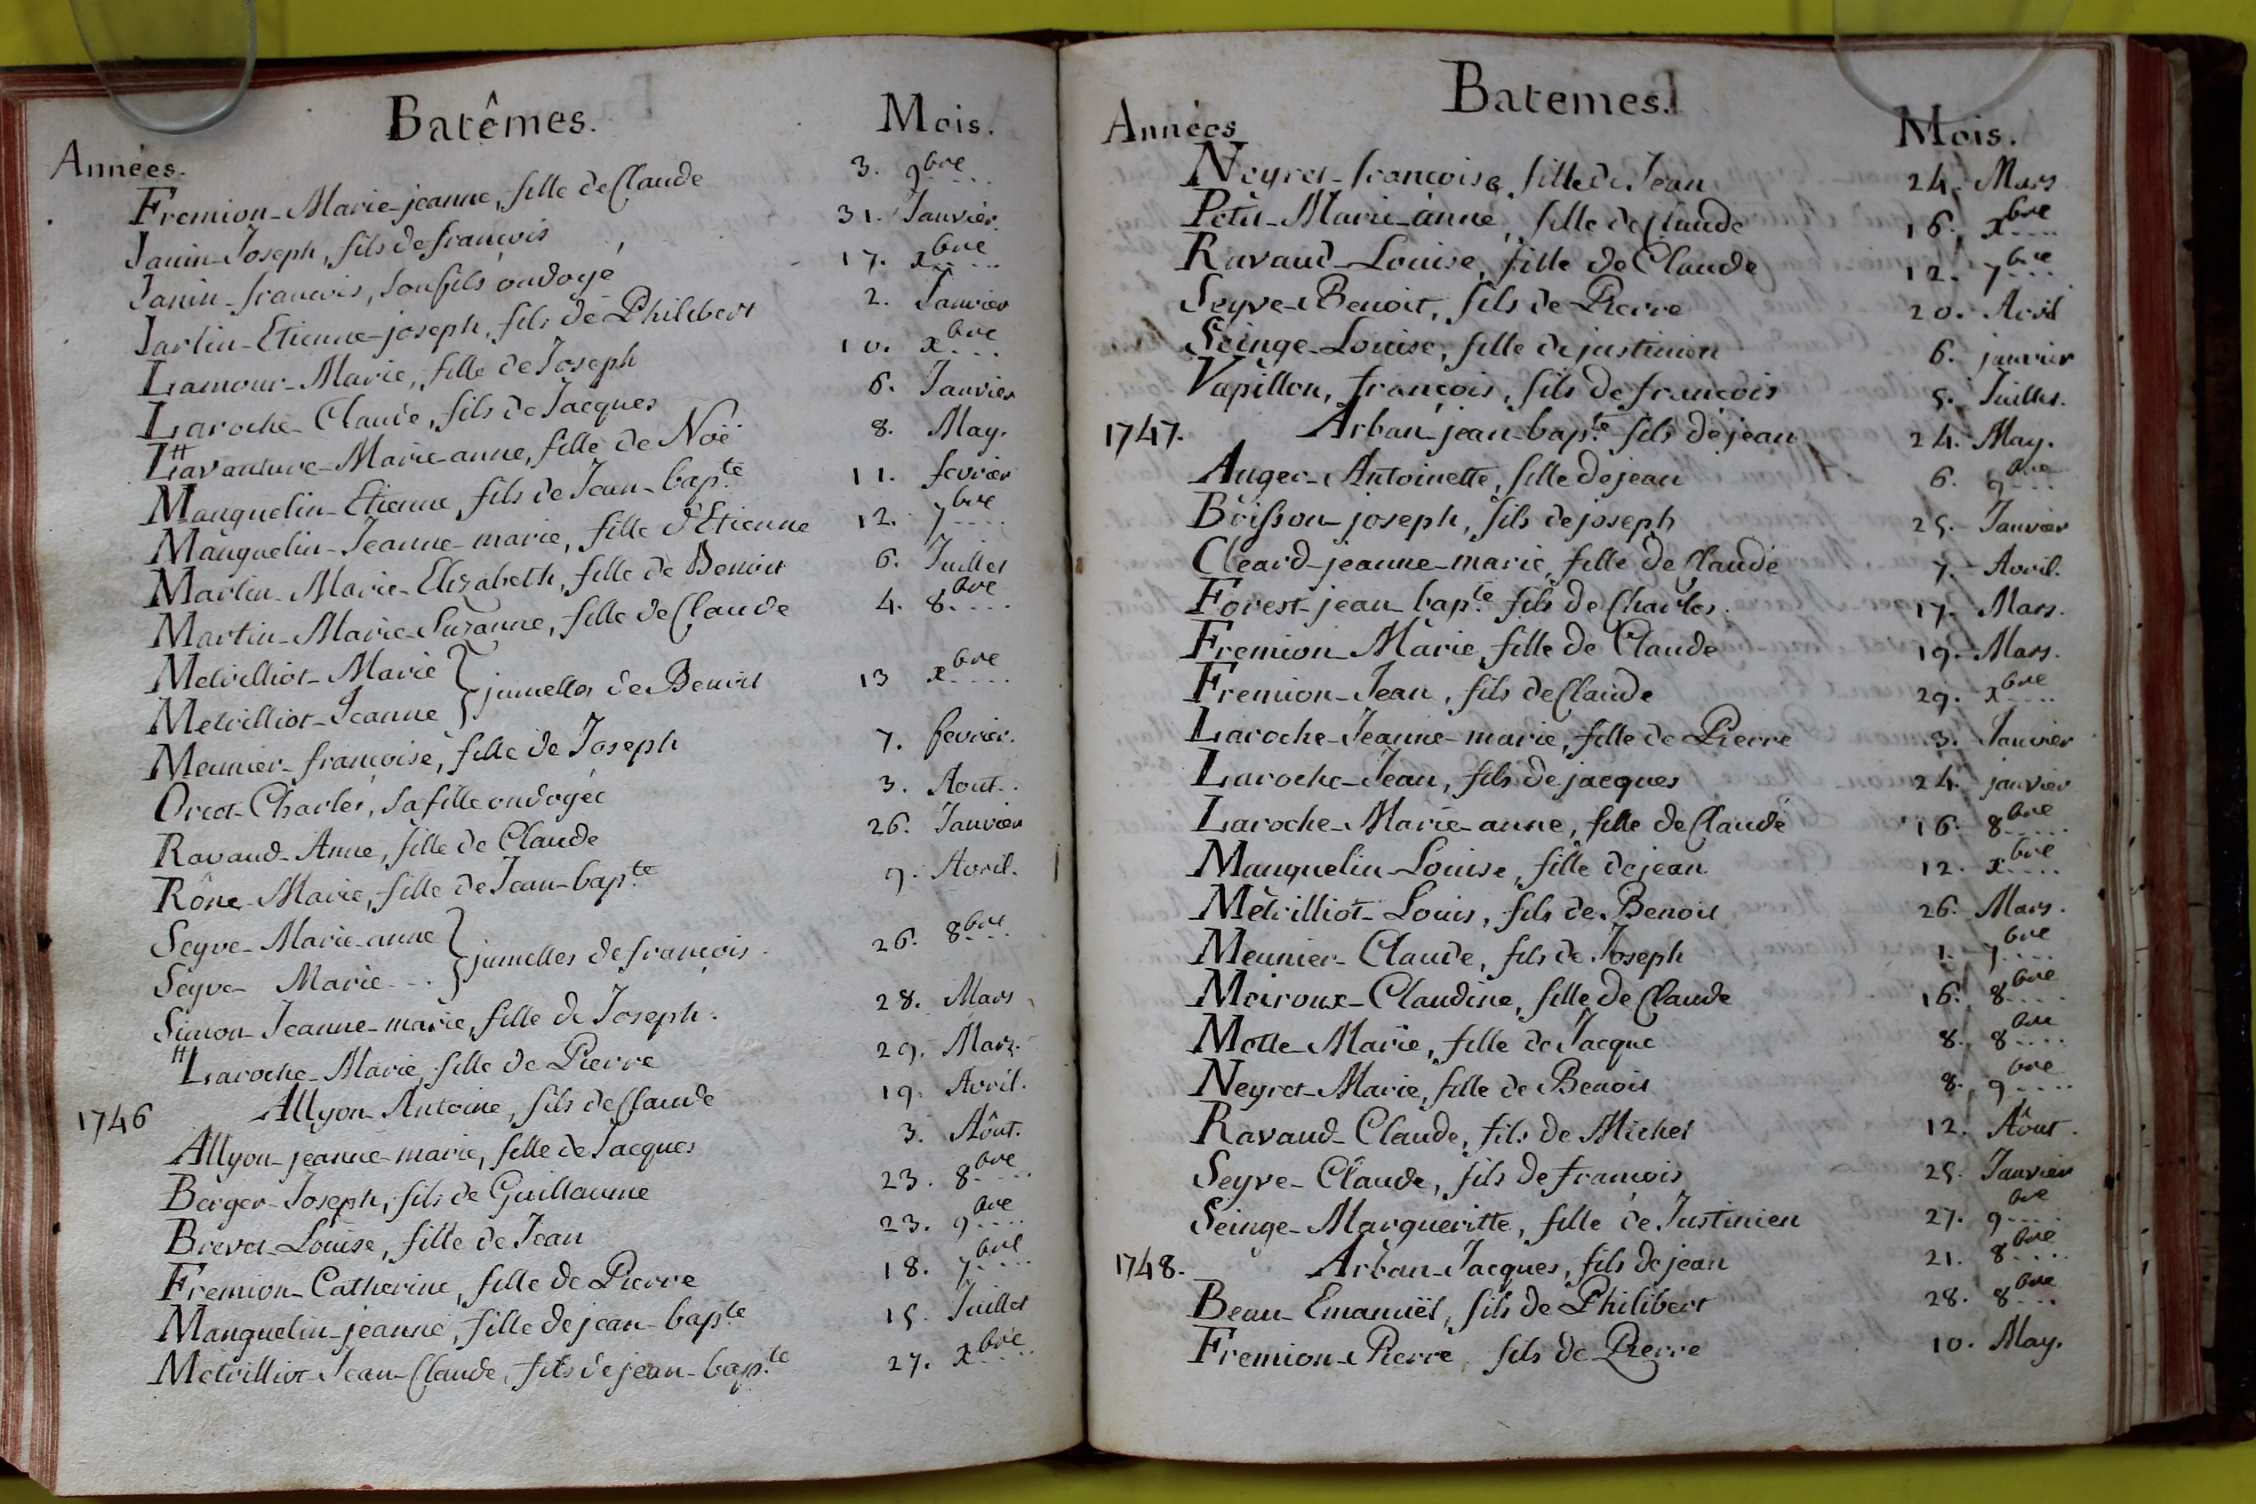 Batêmes.
Années. Mois.
Fremion-Marie-jeanne, fille de Claude 3. 9bre
Janin-Joseph, fils de françois 31. Janvier.
Janin-francois, son fils ondoyé 17. xbre
Jartin-Etienne-joseph, fils de Philibert 2. Janvier
Lamour-Marie, fille de Joseph 10. xbre
Laroche-Claude, fils de Jacques 6. Janvier
Lavanture-Marie-anne, fille de Noë 8. May.
Manquelin-Etienne, fils de Jean-bapte 11. fevrier
Manquelin-Jeanne-marie, fille d'Etienne 12. 7bre
Martin-Marie-Elizabeth, fille de Benoit 6. Juillet
Martin-Marie-Suzanne, fille de Claude 4. 8bre
Metrilliot-Marie
Metrilliot-Jeanne } jumelles de Benoit 13 xbre
Meunier-françoise, fille de Joseph 7. fevrier.
Orcet-Charles, sa fille ondoyée 3. Aout.
Ravaud-Anne, fille de Claude 26. Janvier
Rône-Marie, fille de Jean-bapte 9. Avril.
Seyve-Marie-anne
Seyve- Marie } jumelles de françois. 26. 8bre
Simon-Jeanne-marie, fille de Joseph. 28. Mars
Laroche-Marie, fille de Pierre 29. Mars.
1746 Allyon-Antoine, fils de Claude 19. Avril.
Allyon-jeanne-marie, fille de Jacques 3. Aôut.
Berger-Joseph, fils de Guillaume 23. 8bre
Brevet-Louise, fille de Jean 23. 9bre
Fremion-Catherine, fille de Pierre 18. 7bre
Manquelin-jeanne, fille de jean-bapte 15. Juillet
Metrilliot-Jean-Claude, fils de jean-bapte 27. xbre
Batemes.
Années Mois.
Neyret-francoise, fille de Jean 24. Mars
Petit-Marie-anne, fille de Claude 16. xbre
Ravaud-Louise, fille de Claude 12. 7bre
Seyve-Benoit, fils de Pierre 20. Avril
Seinge-Louise, fille de justinien 6. janvier
Vapillon, françois, fils de françois 5. Juillet.
1747. Arban-jean-bapte fils de jean 24. May.
Auger-Antoinette, fille de jean 6. 9bre
Boisson-joseph, fils de joseph 25. Janvier
Cleard-jeanne-marie, fille de Claude 7. Avril.
Forest-jean-bapte fils de Charles. 17. Mars.
Fremion-Marie, fille de Claude 19. Mars.
Fremion-Jean, fils de Claude 29. xbre
Laroche-Jeanne-marie, fille de Pierre 3. Janvier
Laroche-Jean, fils de jacques 24. janvier
Laroche-Marie-anne, fille de Claude 16. 8bre
Manquelin-Louise, fille de jean 12. xbre
Metrilliot-Louis, fils de Benoit 26. Mars.
Meunier-Claude, fils de Joseph 1. 7bre
Moiroux-Claudine, fille de Claude 16. 8bre
Motte-Marie, fille de Jacque 8. 8bre
Neyret-Marie, fille de Benoit 8. 9bre
Ravaud-Claude, fils de Michel 12. Aôut.
Seyve-Claude, fils de françois 25. Janvier
Seinge-Margueritte, fille de Justinien 27. 9bre
1748. Arban-Jacques, fils de jean 21. 8bre
Beau-Emanuël, fils de Philibert 28. 8bre
Fremion-Pierre, fils de Pierre 10. May.